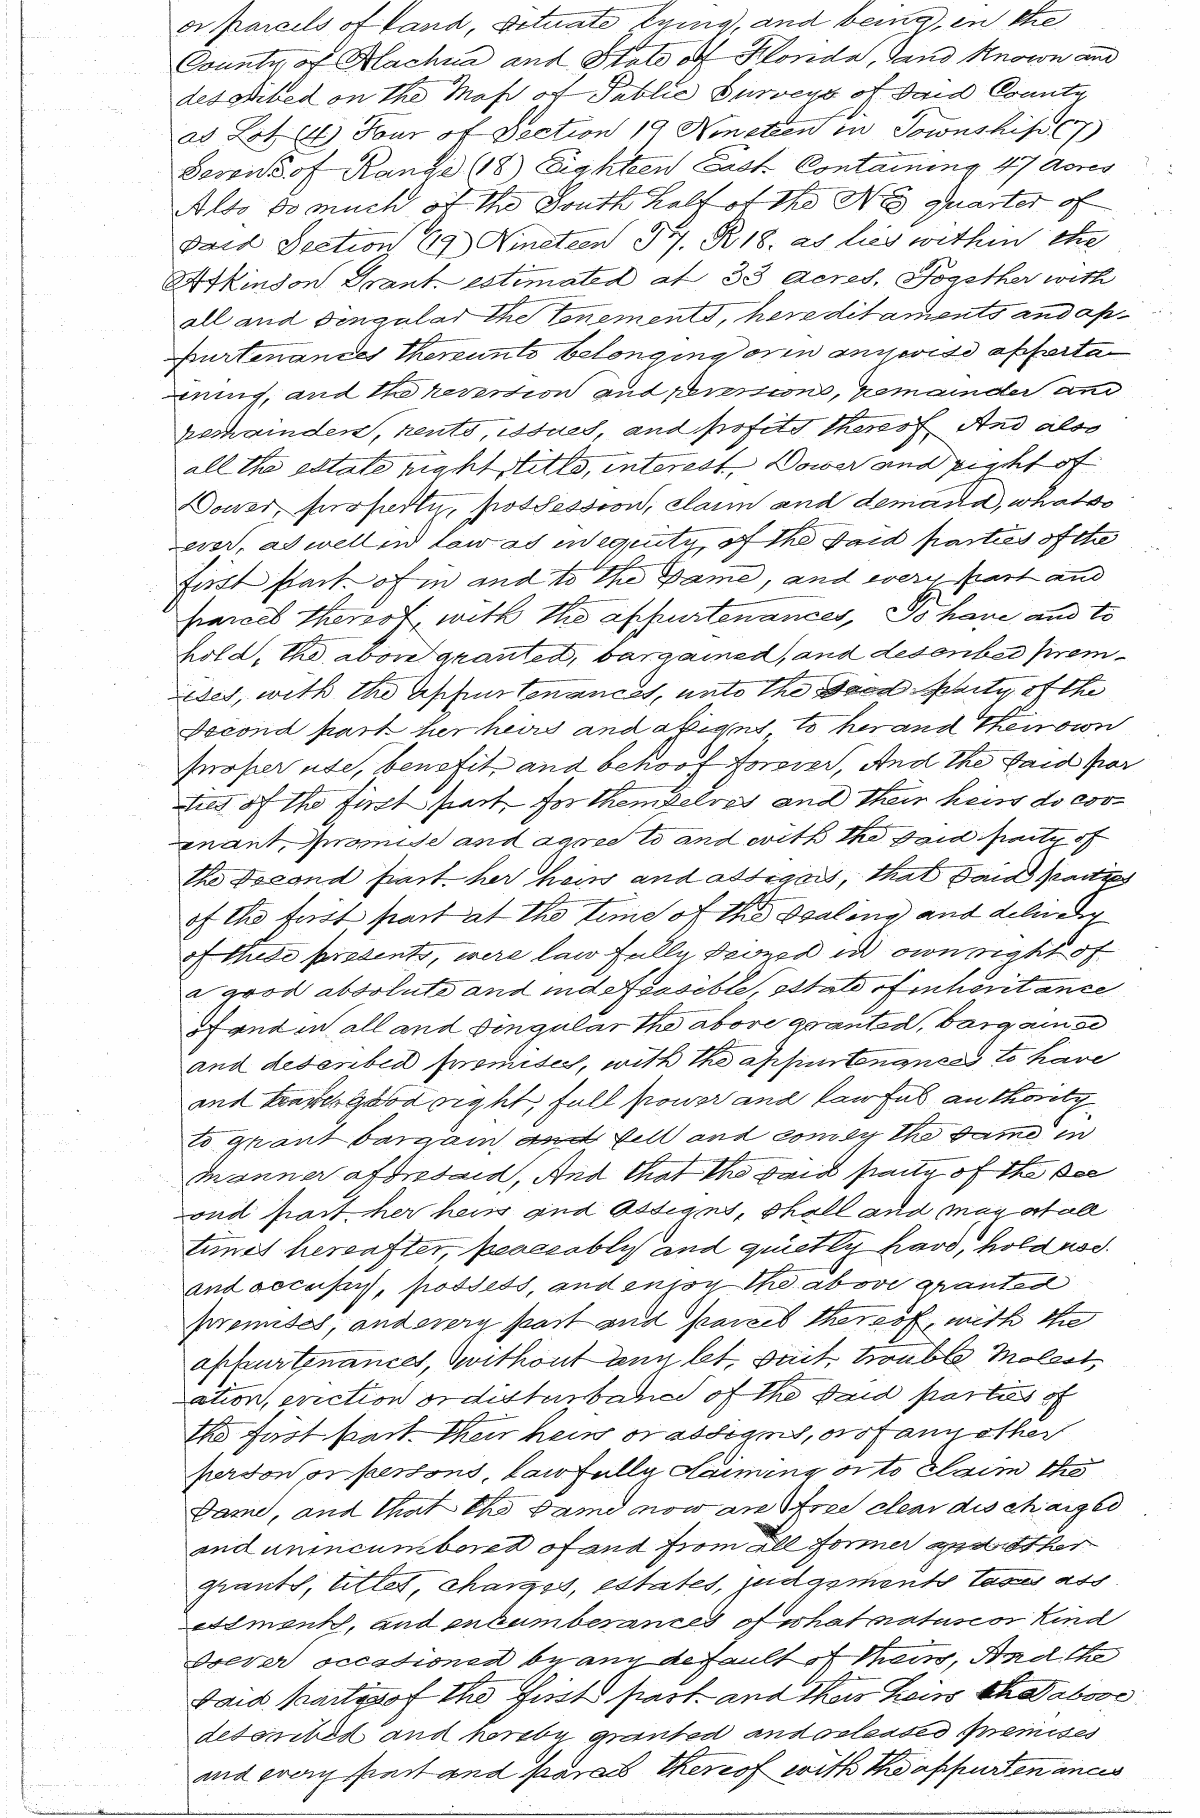 or parcels of Land, situate lying, and being, in the
County of Alachua and State of Florida, and known and
described on the Map of Public Surveys of said County
as Lot (4) Four of Section 19 Nineteen in Township (7)
Seven S. of Range (18) Eighteen East. Containing 47 Acres
Also so much of the South half of the NE quarter of
said Section (19) Nineteen T7. R18. as lies within the
Atkinson Grant. estimated at 33 acres. Together with
all and singular the tenements, hereditaments and ap-
purtenances thereunto belonging or in anywise apperta-
ining, and the reversion and reversions, remainder and
remainders, rents, issues, and profits thereof, And also
all the estate right, title, interest, Dower and right of
Dower, property, possession, claim and demand, whatso
ever, as well in law as in equity, of the said parties of the
first part. of in and to the same, and every part and
parcel thereof, with the appurtenances, To have and to
hold, the above granted, bargained, and described prem-
ises, with the appurtenances, unto the said party of the
second part her heirs and assigns, to her and their own
proper use, benefit, and behoof forever, And the said par
ties of the first part, for themselves and their heirs do cov-
enant, promise and agree to and with the said party of
the second part. her heirs and assigns, that said parties
of the first part at the time of the sealing and delivery
of these presents, were lawfully seized in own right of
a good absolute and indefeasible, estate of inheritance
of and in all and singular the above granted, bargained
and described premises, with the appurtenances to have
and good right, full power and lawful authority
to grant bargain and sell and convey the same in
manner aforesaid, And that the said party of the sec
ond part. her heirs and Assigns, shall and may at all
times hereafter, peaceably and quietly have, hold use.
and occupy, possess, and enjoy the above granted
premises, and every part and parcel thereof, with the
appurtenances, without any let, suit, trouble Molest,
ation, eviction or disturbance of the said parties of
the first part. their heirs or assigns, or of any other
person or persons, lawfully claiming or to claim the
same, and that the same now are free clear discharged
and unincumbered of and from all former and other
grants, titles, charges, estates, judgements taxes ass
essments, and encumberances of what nature or kind
soever occasioned by any default of theirs, And the
said parties of the first part and their heirs the above
described and hereby granted and released premises
and every part and parcel thereof with the appurtenances